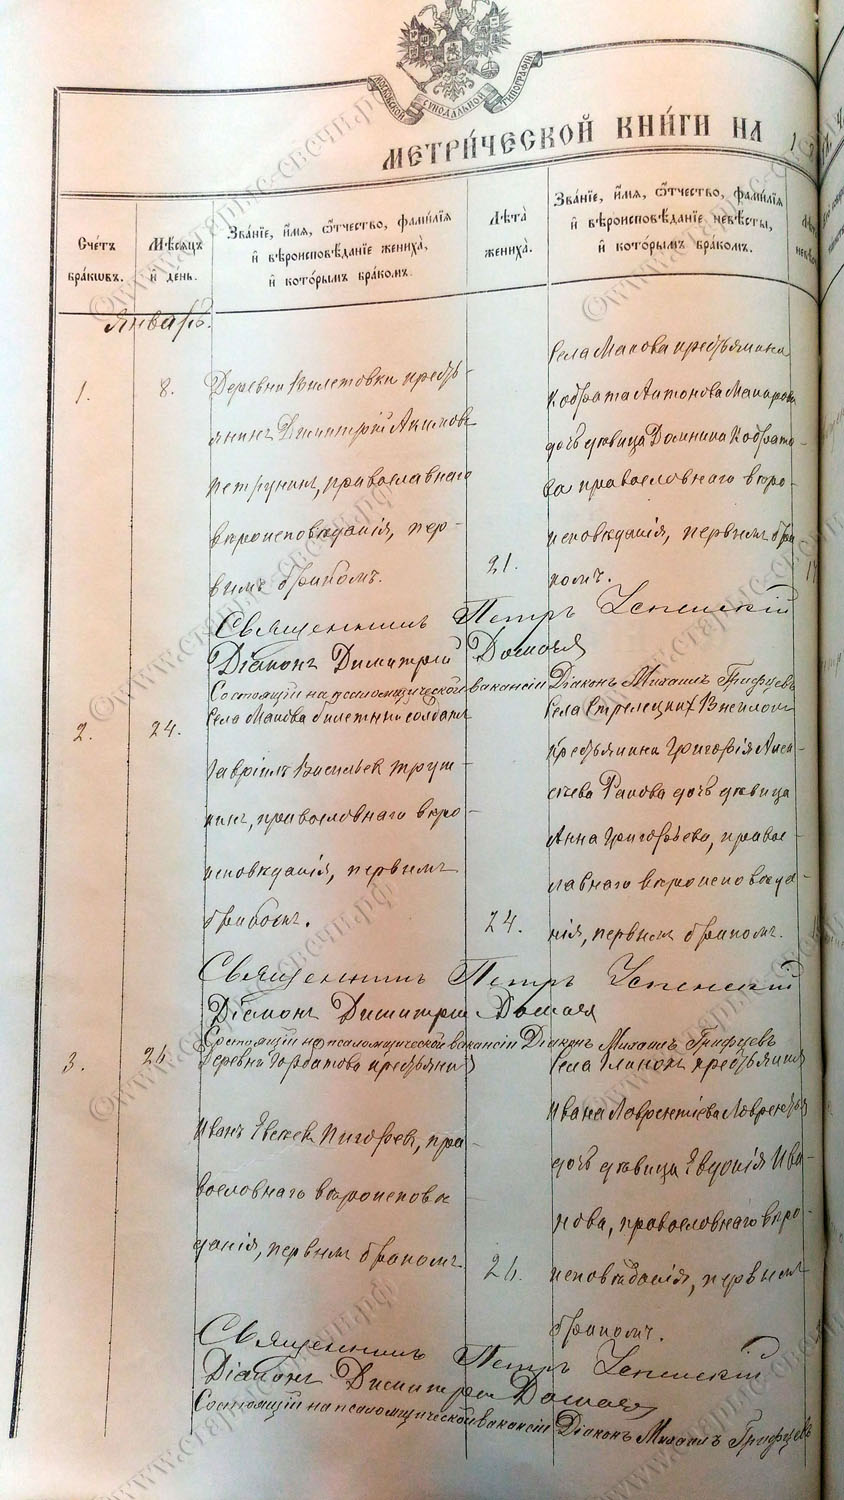 МОСКОВСКОЙ СѴНОДАЛЬНОЙ ТИПОГРАФІИ
МЕТРИ́ЧЕСКОЙ КНИ́ГИ НА 1
Сче́тъ бра́кωвъ.
Мѣ́сяцъ и҆ день.
Зва́нїе, и҆́мя, ѻ҆́тчество, фами́лїя и҆ вѣроисповѣ́данїе жениха̀, и҆ кото́рымъ бра́комъ.
Лѣ́та жениха̀.
Зва́нїе, и҆́мя, ѻ҆́тчество, фами́лїя и҆ вѣроисповѣ́данїе невѣ́сты, и҆ кото́рымъ бра́комъ.
Январь.
1.
8.
Деревни кресть-
янинъ Димитрій Акимовъ
Петрунинъ, православнаго
вѣроисповѣданія, пер-
вымъ бракомъ.
21.
Села Макова крестьянина
Кодрата Антонова Макарова
дочь дѣвица Домника Кодрато-
ва православнаго вѣро-
исповѣданія, первымъ бра-
комъ.
Священникъ Петръ Успенскій
Діаконъ Димитрій
Состоящій на псаломщической вакансіи Діаконъ Михаилъ Грифцевъ
2.
24.
Села Макова билетный солдатъ
Гавріилъ Васильевъ Труш-
кинъ, православнаго вѣро-
исповѣданія, первымъ
бракомъ.
24.
Села Стрелецкихъ Выселокъ
крестьянина Григорія Алек-
сѣева Ракова дочь дѣвица
Анна Григорьева, правос-
лавнаго вѣроисповѣда-
нія, первымъ бракомъ.
Священникъ Петръ Успенскій
Діаконъ Димитрій
Состоящій на псаломщической вакансіи Діаконъ Михаилъ Грифцевъ
3.
26.
Деревни Горбатова крестьянинъ
Иванъ Евсеевъ Пигоревъ, пра-
вославнаго вѣроисповѣ
данія, первымъ бракомъ
26.
Села Глинокъ крестьянина
Ивана Лаврентіева Лаврентьева
дочь дѣвица Евдокія Ива-
нова, православнаго вѣро-
исповѣданія, первымъ
бракомъ.
Священникъ Петръ Успенскій
Діаконъ Димитрій
Состоящій на псаломщической вакансіи Діаконъ Михаилъ Грифцевъ
©www.старые-свечи.рф